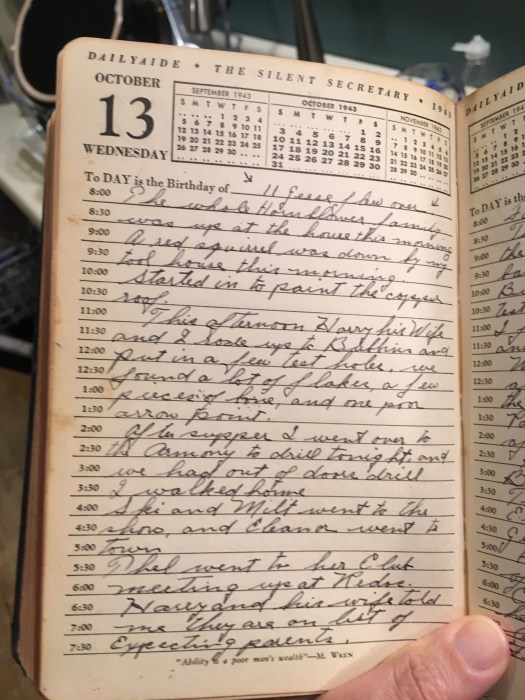 DAILYAIDE • THE SILENT SECRETARY • 1943
OCTOBER
13
WEDNESDAY
SEPTEMBER 1943
S M T W T F S
1 2 3 4
5 6 7 8 9 10 11
12 13 14 15 16 17 18
19 20 21 22 23 24 25
26 27 28 29 30
OCTOBER 1943
S M T W T F S
1 2
3 4 5 6 7 8 9
10 11 12 13 14 15 16
17 18 19 20 21 22 23
24 25 26 27 28 29 30
31
NOVEMBER 1943
To DAY is the Birthday of 11 Geese flew over
8:00 The whole Hornblower family
8:30 was up at the house this morning
9:00 A red squirrel was down by my
9:30 tool house this morning
10:00 Started in to paint the copper
10:30 roof.
11:00 This afternoon Harry his Wife
11:30 and I rode up to Robbins and
12:00 put in a few test holes, we
12:30 found a lot of flakes, a few
1:00 pieces of bone, and one poor
1:30 arrow point.
2:00 After supper I went over to
2:30 the Armory to drill tonight, and
3:00 we had out of doors drill
3:30 I walked home
4:00 Ski and Milt went to the
4:30 show, and Eleanor went to
5:00 town
5:30 Phel went to her Club
6:00 meeting up at
6:30 Harry and his wife told
7:00 me they are on list of
7:30 Expecting parents.
"Ability is a poor man's wealth"—M. WREN
DAILYAID
SEPTEMBER
To DAY is th
8:00
8:30
9:00
9:30
10:00
10:30
11:00
11:30
12:00
12:30
1:00
1:30
2:00
2:30
3:00
3:30
4:00
4:30
5:00
5:30
6:00
6:30
7:00
7:30